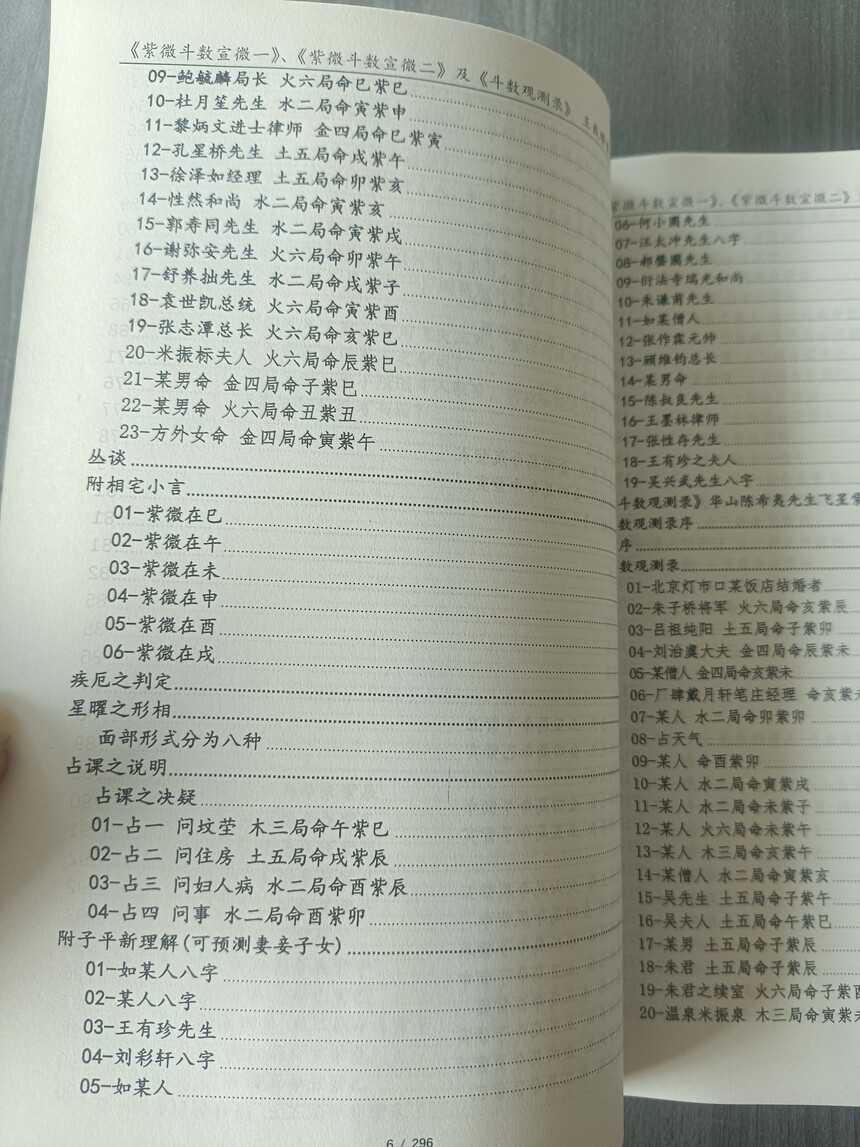 《紫微斗数宣微一》、《紫微斗数宣微二》及《斗数观测录》
09-鲍毓麟局长 火六局命巳紫巳
10-杜月笙先生 水二局命寅紫申
11-黎炳文进士律师 金四局命巳紫寅
12-孔星桥先生 土五局命戌紫午
13-徐泽如经理 土五局命卯紫亥
14-性然和尚 水二局命寅紫亥
15-郭寿同先生 水二局命寅紫戌
16-谢弥安先生 火六局命卯紫午
17-舒养拙先生 水二局命戌紫子
18-袁世凯总统 火六局命寅紫酉
19-张志潭总长 火六局命亥紫巳
20-米振标夫人 火六局命辰紫巳
21-某男命 金四局命子紫巳
22-某男命 火六局命丑紫丑
23-方外女命 金四局命寅紫午
丛谈
附相宅小言
01-紫微在巳
02-紫微在午
03-紫微在未
04-紫微在申
05-紫微在酉
06-紫微在戌
疾厄之判定
星曜之形相
面部形式分为八种
占课之说明
占课之决疑
01-占一 问坟茔 木三局命午紫巳
02-占二 问住房 土五局命戌紫辰
03-占三 问妇人病 水二局命酉紫辰
04-占四 问事 水二局命酉紫卯
附子平新理解(可预测妻妾子女)
01-如某人八字
02-某人八字
03-王有珍先生
04-刘彩轩八字
05-如某人
6 / 296
紫微斗数宣微一》、《紫微斗数宣微二》
06-何小圃先生
07-汪太冲先生八字
08-郝馨圃先生
09-衍法寺瑞光和尚
10-朱谦甫先生
11-如某僧人
12-张作霖元帅
13-顾维钧总长
14-某男命
15-陈叔良先生
16-王墨林律师
17-张性存先生
18-王有珍之夫人
19-吴兴武先生八字
斗数观测录》华山陈希夷先生飞星紫
数观测录序
序
数观测录
01-北京灯市口某饭店结婚者
02-朱子桥将军 火六局命亥紫辰
03-吕祖纯阳 土五局命子紫卯
04-刘治虞大夫 金四局命辰紫未
05-某僧人 金四局命亥紫未
06-厂肆戴月轩笔庄经理 命亥紫未
07-某人 水二局命卯紫卯
08-占天气
09-某人 命酉紫卯
10-某人 水二局命寅紫戌
11-某人 水二局命未紫子
12-某人 火六局命未紫午
13-某人 木三局命亥紫午
14-某僧人 水二局命寅紫亥
15-吴先生 土五局命子紫午
16-吴夫人 土五局命午紫巳
17-某男 土五局命子紫辰
18-朱君 土五局命子紫辰
19-朱君之续室 火六局命子紫酉
20-温泉米振泉 木三局命寅紫未